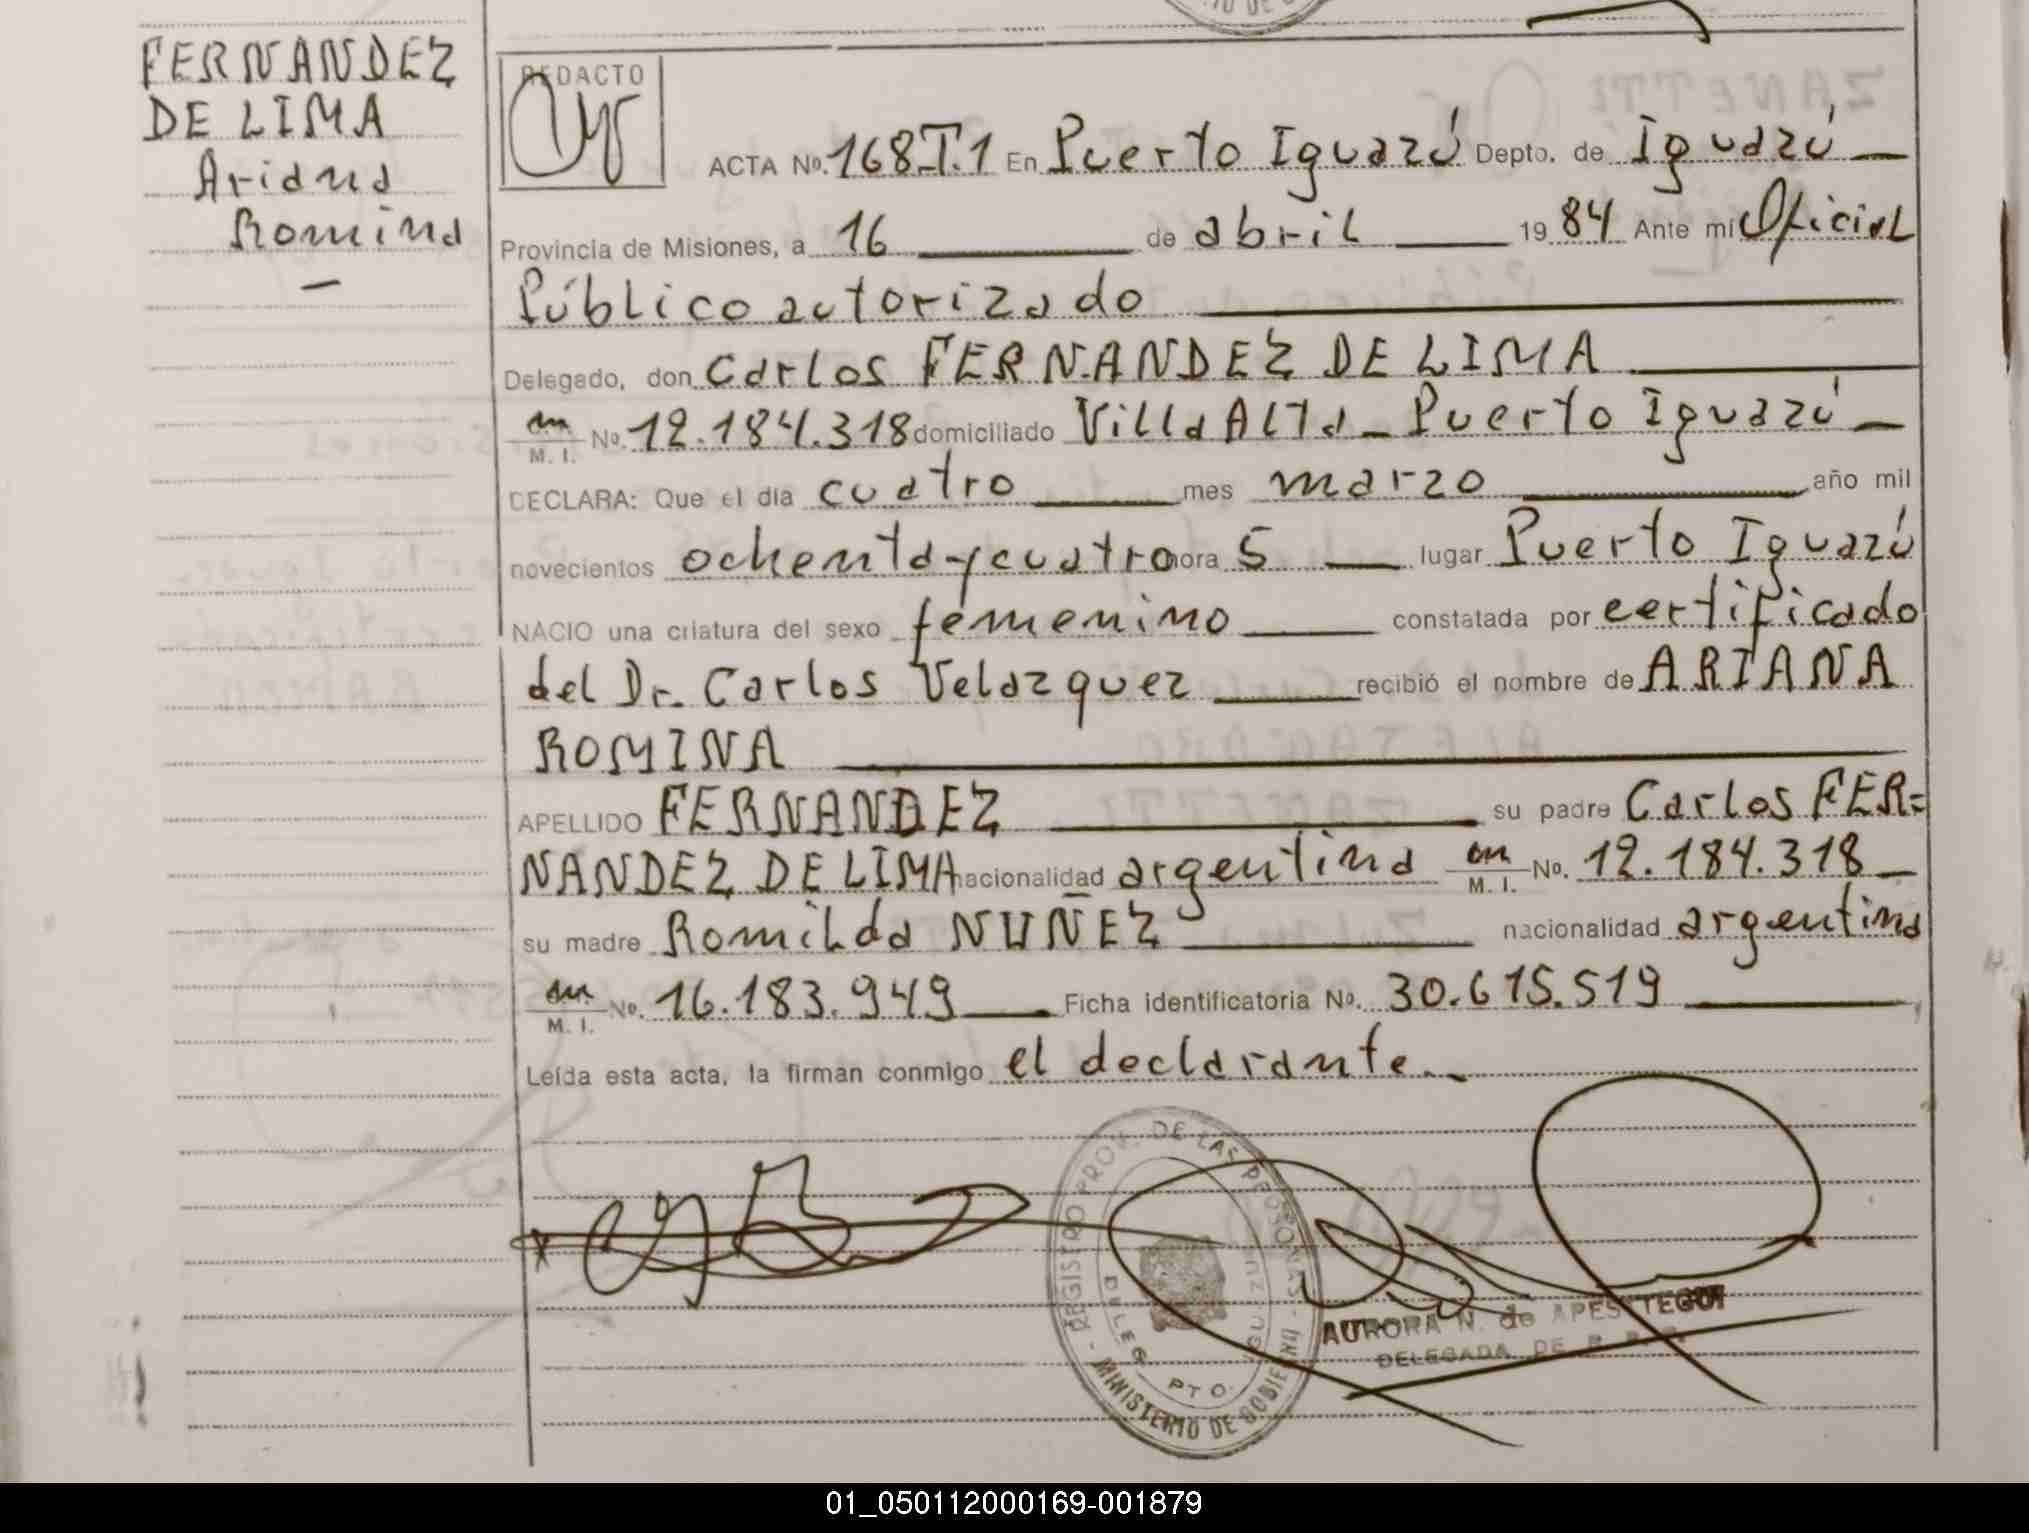 FERNANDEZ
DE LIMA
Ariana
Romina
—
REDACTO
ACTA Nº. 168 T.1 En Puerto Iguazú Depto. de Iguazú —
Provincia de Misiones, a 16 de abril 19 84 Ante mí Oficial
Público autorizado
Delegado, don Carlos FERNANDEZ DE LIMA
M. I. Nº. 12.184.318 domiciliado Villa Alta - Puerto Iguazú —
DECLARA: Que el día cuatro mes marzo año mil
novecientos ochenta y cuatro hora 5 lugar Puerto Iguazú
NACIO una criatura del sexo femenino constatada por certificado
del Dr. Carlos Velazquez recibió el nombre de ARIANA
ROMINA
APELLIDO FERNANDEZ su padre Carlos FER=
NANDEZ DE LIMA nacionalidad argentina M. I. Nº. 12.184.318 —
su madre Romilda NUÑEZ nacionalidad argentina
M. I. Nº. 16.183.949 Ficha identificatoria Nº. 30.615.519
Leída esta acta, la firman conmigo el declarante.-
REGISTRO PROV. DE LAS PERSONAS - MINISTERIO DE GOBIERNO
DELEG. PTO. IGUAZU
AURORA N. de APESTEGUI
DELEGADA DE
01_050112000169-001879